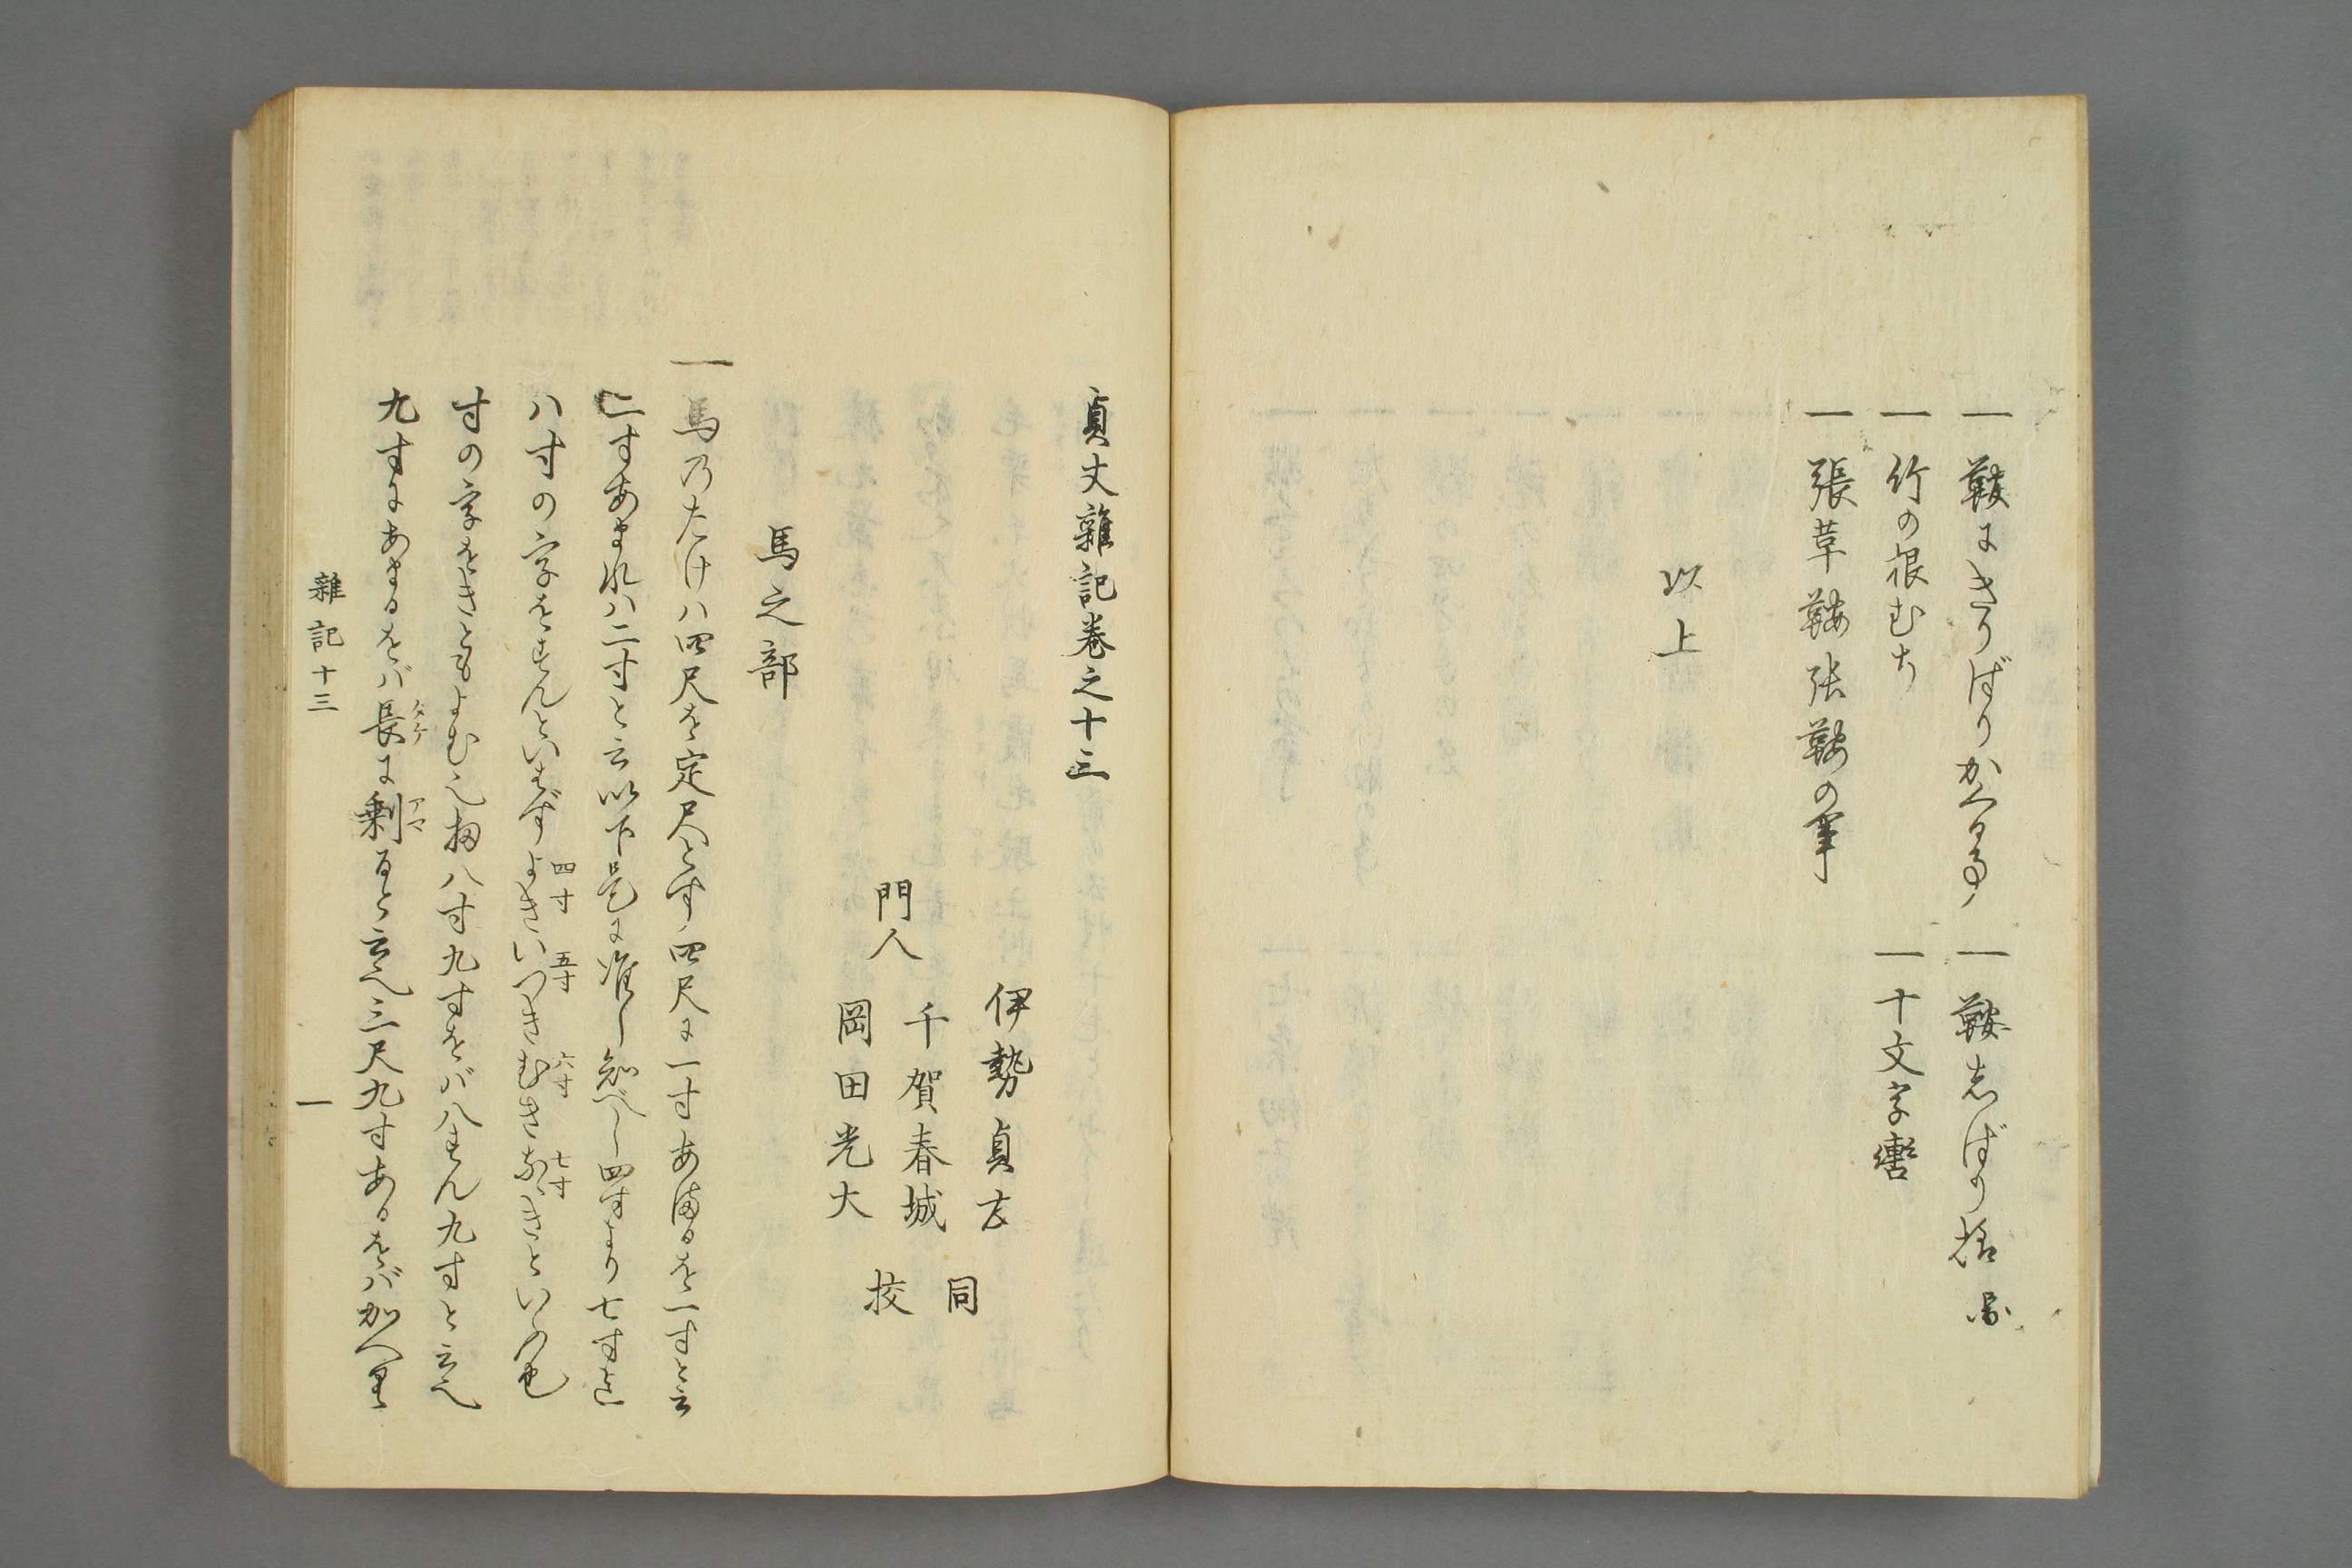 一 鞍にきりばりかくる事 一 鞍志ばり捨る
一 竹の根むち 一 十文字轡
一 張草鞍張鞍の事
以上
貞丈雜記卷之十三
伊勢貞友
同
門人 千賀春城
岡田光大
挍
馬之部
一 馬乃たけハ四尺を定尺とす四尺に一寸あまるを一寸と云
二寸あまれハ二寸と云以下是に准し知べし四寸より七寸迄
ハ寸の字をすんといはずよきいつきむきなゝきといふ也
四寸 五寸 六寸 七寸
寸の字をきともよむ也扨八寸九寸をバ八すん九寸と云也
九寸にあまるをバ長に剰ると云也三尺九寸あるをバ加へり
タケ アマ
雜記十三 一